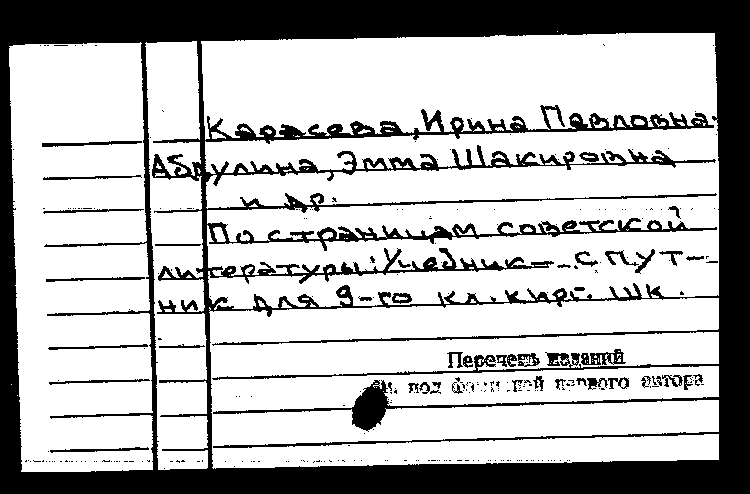 Карасева, Ирина Павловна.
Абдулина, Эмма Шакировна
и др.
По страницам советской
литературы: Учебник – спут-
ник для 9-го кл. кирг. шк.
Перечень изданий
см. под фамилией первого автора